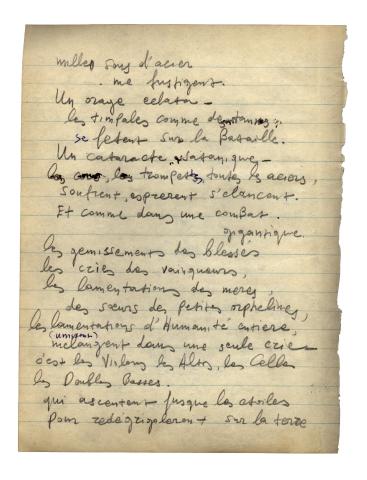 milles sons d'acier
me fustigent.
Un orage eclata –
les timpales comme
se fetent sur la Bataille.
Un cataracte, satanique –
les trompets, toutes les aciers,
souffrent, esperent s'elancent.
Et comme dans une combat.
gigantique.
les gemissements des blessés
les cries des vainqueurs,
les lamentations des meres,
des sœurs des petites orphelines,
les lamentations d'Humanité entiere,
(unissent)
melangent dans une seule crie
c'est les Violons les Altos, les Celles
les Doubles Basses.
qui ascentent jusque les etoiles
pour redégrigolerent sur la terre